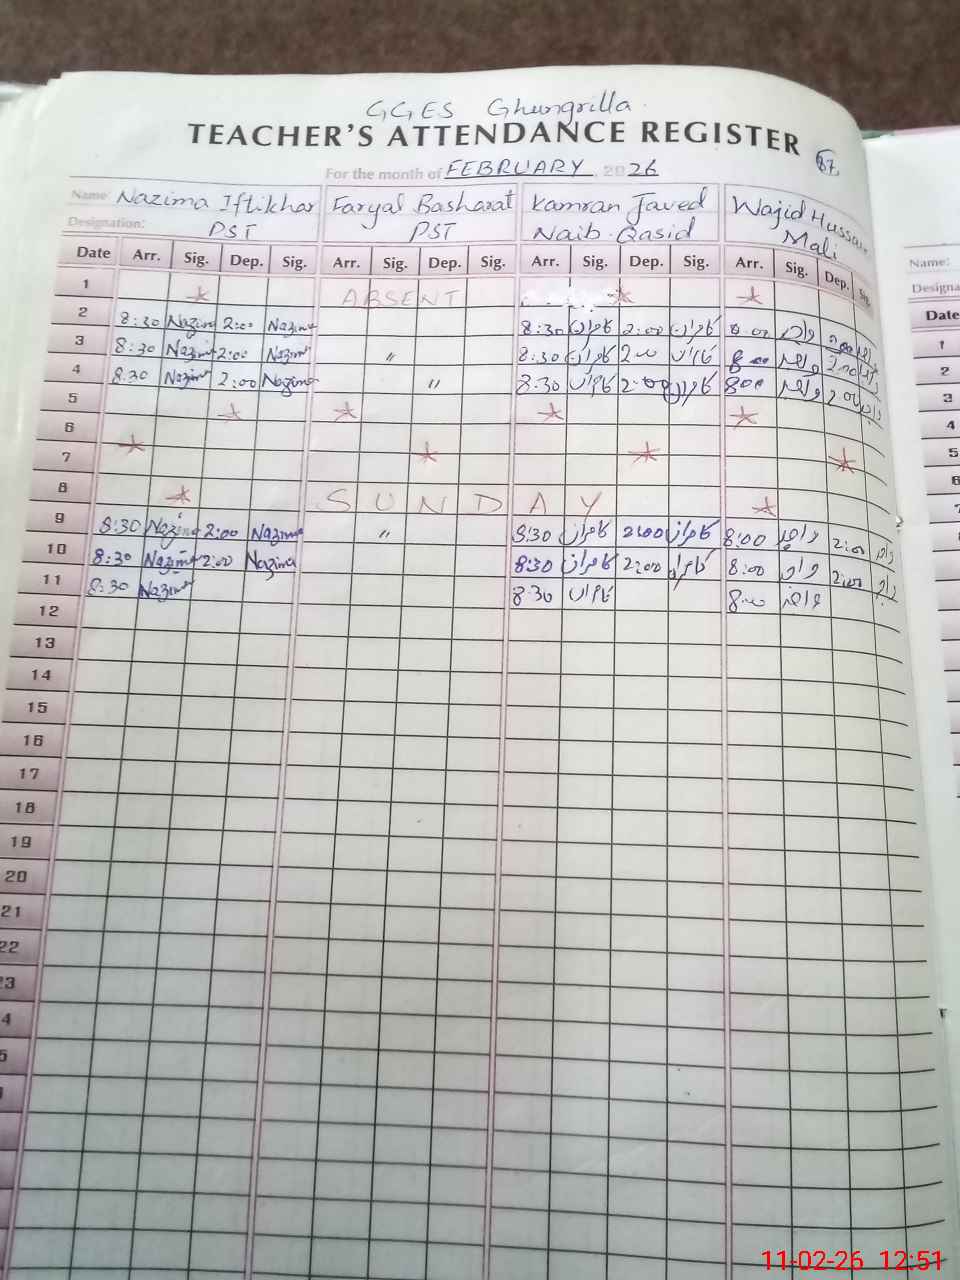 GGES Ghungrilla
TEACHER'S ATTENDANCE REGISTER
87
For the month of FEBRUARY, 2026
Name: Nazima Iftikhar Faryal Basharat Kamran Javed Wajid Hussain
Designation: PST PST Naib Qasid Mali
Date Arr. Sig. Dep. Sig. Arr. Sig. Dep. Sig. Arr. Sig. Dep. Sig. Arr. Sig. Dep. Sig.
1 ABSENT
2 8:30 Nazima 2:00 Nazima 8:30 کامران 2:00 کامران 8:00 واجد 2:00 واجد
3 8:30 Nazima 2:00 Nazima " 8:30 کامران 2:00 کامران 8:00 واجد 2:00 واجد
4 8:30 Nazima 2:00 Nazima " 8:30 کامران 2:00 کامران 8:00 واجد 2:00 واجد
5
6
7
8 SUNDAY
9 8:30 Nazima 2:00 Nazima " 8:30 کامران 2:00 کامران 8:00 واجد 2:00 واجد
10 8:30 Nazima 2:00 Nazima 8:30 کامران 2:00 کامران 8:00 واجد 2:00 واجد
11 8:30 Nazima 8:30 کامران 8:00 واجد
12
13
14
15
16
17
18
19
20
21
22
23
4
5
Name:
Designa
Date
1
2
3
4
5
6
11-02-26 12:51